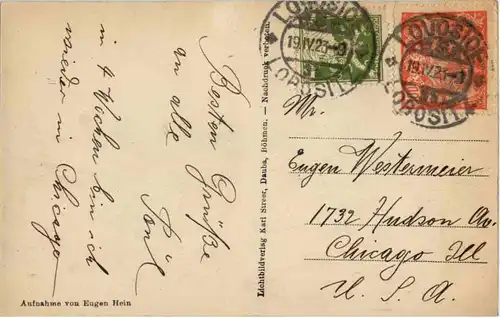 Besten Grüße
an alle
in 4 Wochen bin ich
wieder in Chicago
Aufnahme von Eugen Hein
Lichtbildverlag Karl Streer, Dauba, Böhmen. — Nachdruck verboten.
LOVOSICE
19.IV.23
LOBOSITZ
LOVOSICE
19.IV.23
LOBOSITZ
Mr.
Eugen Westermeier
1732 Hudson Av.
Chicago Ill
U. S. A.